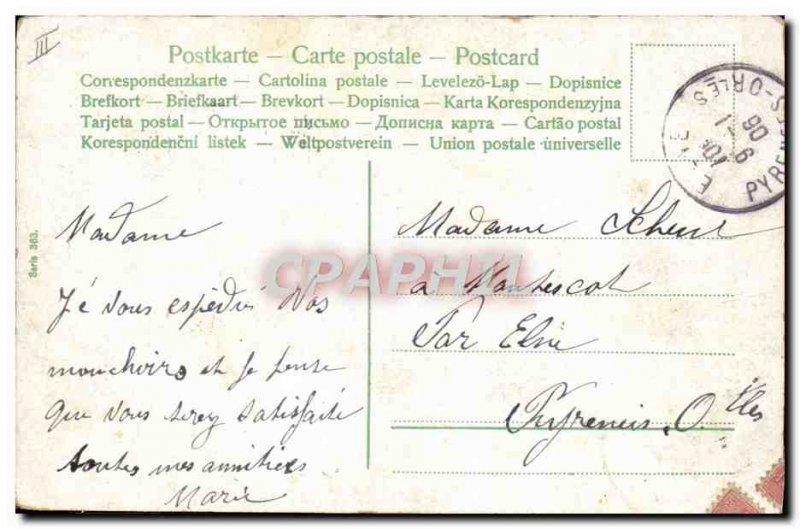 III
Postkarte — Carte postale — Postcard
Correspondenzkarte — Cartolina postale — Levelező-Lap — Dopisnice
Brefkort — Briefkaart — Brevkort — Dopisnica — Karta Korespondenzyjna
Tarjeta postal — Открытое письмо — Дописна карта — Cartão postal
Korespondenční listek — Weltpostverein — Union postale universelle
ELNE
PYRENEES-ORLES
9 -1
06
Serie 363.
Madame
Je vous espédié vos
mouchoirs et je pense
que vous serez satisfaite
toutes mes amitiés
Marie
Madame
à
Par Elne
Pyrenées. O. tles
CPAPHIL